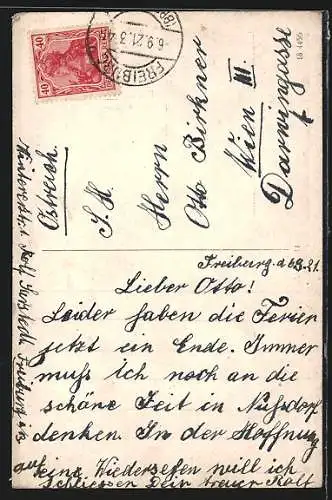 40 40
FREIBURG
6.9.21. 3-4
18 4455
Östreich.
S. H.
Herrn
Otto Birkner
Wien III.
Darwingasse
Freiburg. d 6.9.21.
Lieber Otto!
Leider haben die Ferien
jetzt ein Ende. Immer
muſs ich noch an die
schöne Zeit in Nuſsdorf
denken. In der Hoffnung
auf eine Wiedersehen will ich
schliessen Dein treuer Rolf
Rolf Freiburg